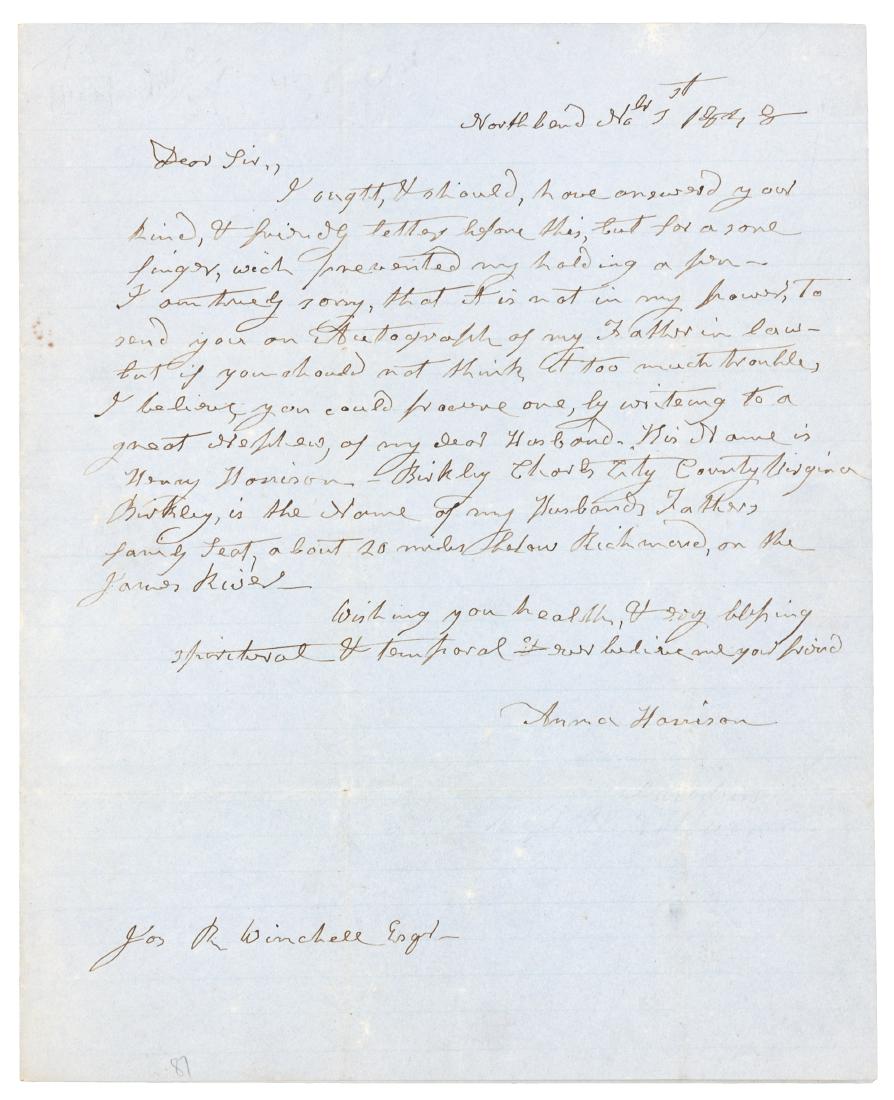 Northbend No^br 1^st 1848
Dear Sir,,
I ought, & should, have answerd your
kind, & friendly letters before this, but for a sore
finger, wich prevented my holding a pen—
I am truely sorry, that it is not in my power, to
send you an Autograph of my Father in law—
but if you should not think it too much trouble,
I believe, you could procure one, by writeing to a
great Nephew, of my dear Husband. His Name is
Henry Harrison— Birkley Charls City County Virginia
Birkley, is the Name of my Husbands Fathers
family Seat, about 20 miles below Richmond, on the
James River—
Wishing you health, & evry blessing
spiritural & temporal ever believe me your friend
Anna Harrison
Jos R Winchell Esqr—
87